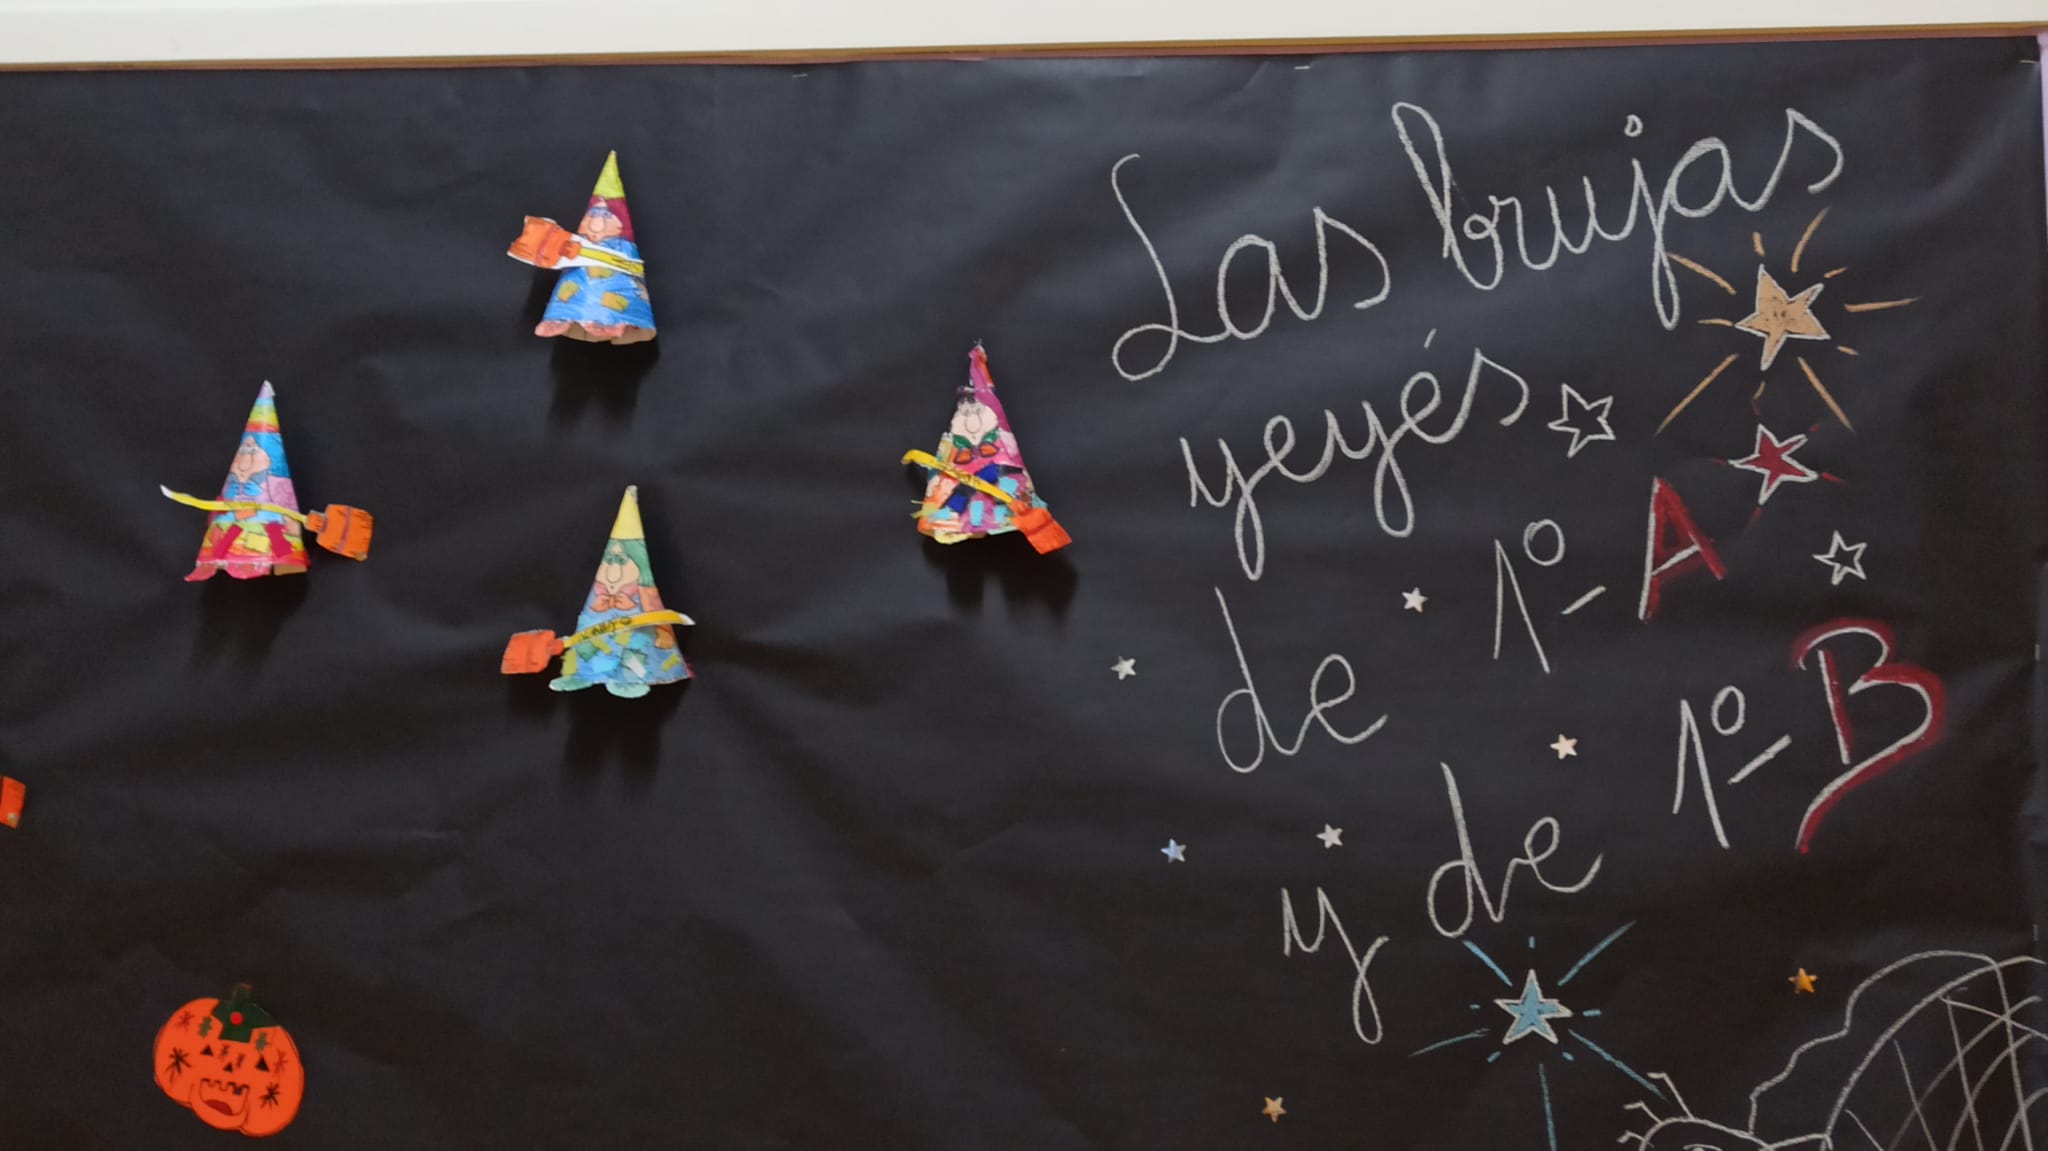 Las brujas
yeyés
de 1º A
y de 1º B